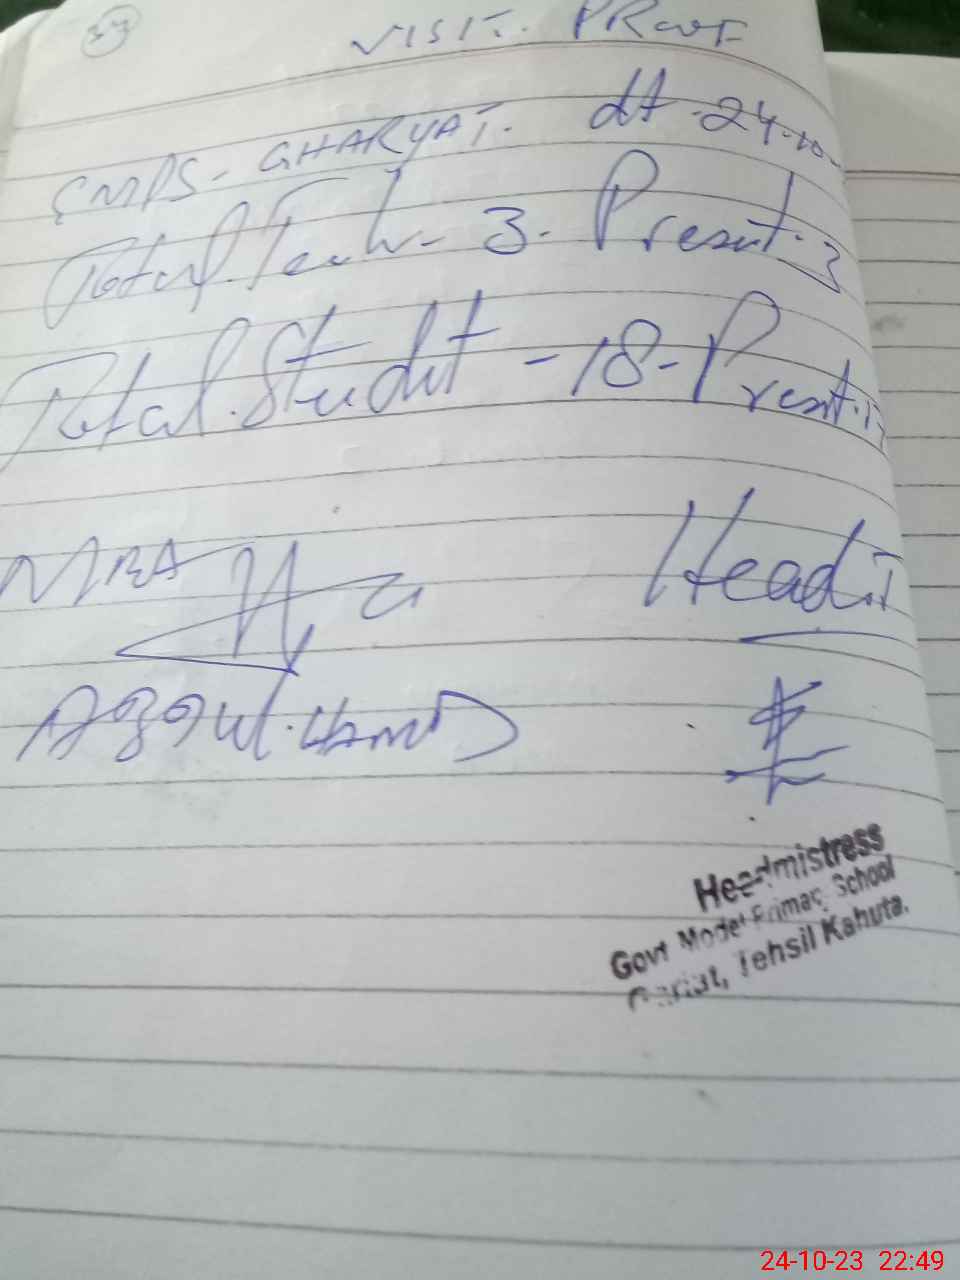 34
VISIT. PROOF
GMPS - GHARYAT. dt - 24-10-
Total Teach - 3. Present. 3
Total. Studt - 18 - Present. 17
MEA
Head.T
Headmistress
Govt Model Primary School
Tehsil Kahuta.
24-10-23 22:49